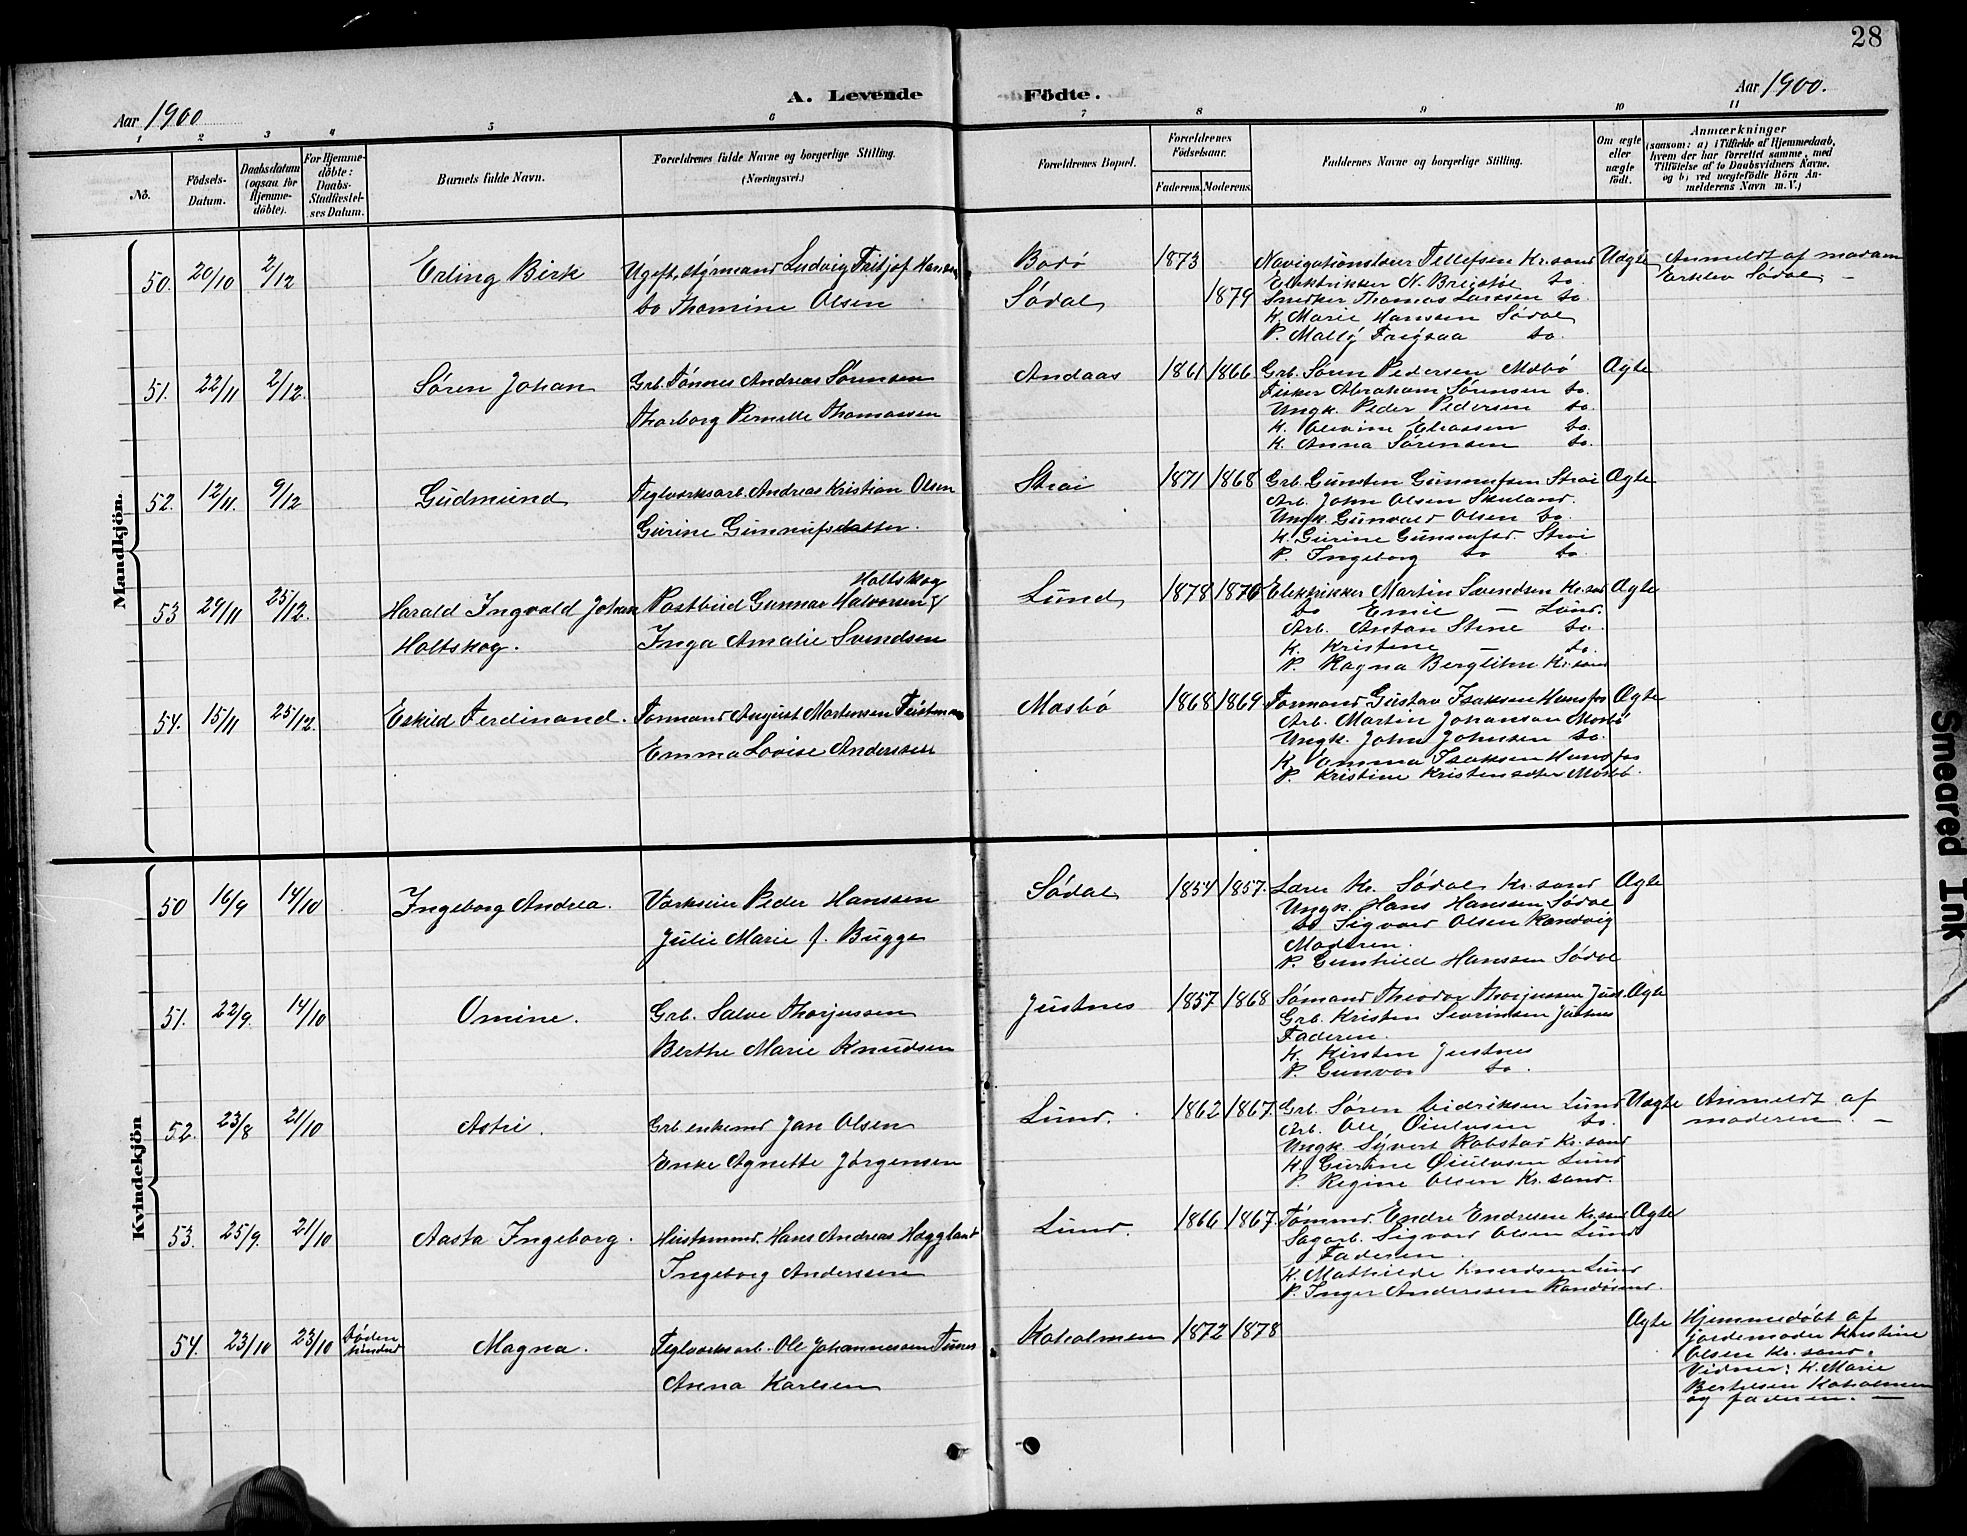 28
A. Levende Födte.
Aar 1900
Aar 1900.
1 2 3 4 5 6 7 8 9 10 11
No.
Födsels-Datum.
Daabsdatum (ogsaa for Hjemme-döbte).
For Hjemme-döbte: Daabs-Stadfæstel-ses Datum.
Barnets fulde Navn.
Forældrenes fulde Navne og borgerlige Stilling. (Næringsvei.)
Forældrenes Bopæl.
Forældrenes Födselsaar.
Faderens. Moderens.
Faddernes Navne og borgerlige Stilling.
Om ægte eller uægte født.
Anmærkninger
(saasom: a) i Tilfælde af Hjemmedaab, hvem der har forrettet samme, med Tilföielse af to Daabsvidners Navne, og b) ved uægtefödte Börn An-melderens Navn m. V.)
Mandkjön.
50. 20/10 2/12 Erling Birk
Ugift styrmand Ludvig Fritjof Hansen
do Thomine Olsen
Bodö
Södal
1873
1879
Navigationslærer Tellefsen Kr.sand
Elektrikker N. Bregstöl do.
Snedker Thomas Larssen do.
K. Marie Hanssen Södal
P. Mally Frigsaa do.
Uægte
Anmeldt af madam
Erklev Södal –
51. 22/11 2/12. Sören Johan
Grb. Tönnes Andreas Sörensen
Thorborg Pernille Thomassen
Andaas
1861 1866
Grb. Sören Pedersen Mosbö
Fisker Abraham Sörensen do.
Ungk. Peder Pedersen do.
K. Olevine Eliassen do.
K. Anna Sörensen do.
Ægte
52. 12/11. 9/12 Gudmund
Teglværksarb. Andreas Kristian Olsen
Gurine Gunnufsdatter.
Strai
1871 1868
Grb. Gunsten Gunnufsen Strai
Arb. John Olsen Skuland.
Ungk. Gunvald Olsen do.
K. Gurine Gunnufsd. Strai
P. Ingeborg do do.
Ægte
53 29/11 25/12. Harald Ingvald Johan
Holtskog.
Holtskog
Postbud Gunnar Halvorsen
Inga Amalie Svendsen
Lund
1878 1876
Elektrikker Martin Svendsen Kr.sand
do Emil – Lund.
Arb. Anton Stene do.
K. Kristene – do.
P. Ragna Berglihn Kr.sand
Ægte
54. 15/11 25/12. Eskild Ferdinand.
Tommand August Mortensen
Emma Lovise Anderssen
Mosbö
1868 1869.
Tommand Gustav Isaksen Hunsfos
Arb. Martin Johanson Mosbö
Ungk. John Johnsen do.
K. Omma Isaksen Hunsfos
P. Kristine Kristensdter Mosbö.
Ægte
Kvindekjön
50 16/9 14/10 Ingeborg Andrea.
Værkseier Peder Hanssen
Julie Marie f. Bugge
Södal
1854 1857.
Lærer Kr. Södal Kr.sand
Ungk. Hans Hanssen Södal
do Sigvard Olsen Randvig
Moderen.
P. Gunhild Hanssen Södal
Ægte
51. 22/9. 14/10 Omine.
Grb. Salve Thorjussen
Berthe Marie Knudsen
Justnes
1857 1868
Sömand Theodor Thorjussen Just.
Grb. Kristen Severinsen Justnes
Faderen.
K. Kirsten Justnes
P. Gunvor do.
Ægte
52. 23/8 21/10 Astri.
Grb. enkemd Jan Olsen
Enke Agnette Jörgensen
Lund.
1862 1867.
Grb. Sören Didriksen Lund
Arb. Ole Öiulvsen do.
Ungk. Syvert Robstad Kr.sand
K. Gurine Öiulvsen Lund
P. Regine Olsen Kr.sand.
Uægte
Anmeldt af
moderen. –
53. 25/9. 21/10 Aasta Ingeborg.
Hustomnd. Hans Andreas Hægglant
Ingeborg Anderssen
Lund.
1866 1867.
Tömmd. Endre Endresen Kr.sand
Sagarb. Sigvard Olsen Lund
Faderen.
K. Mathilde Knudsen Lund
P. Inger Anderssen Randösund.
Ægte
54. 23/10 23/10 Döden hindred Magna.
Teglværksarb. Ole Johannessen Tunes
Anna Karlsen
Koholmen
1872 1878
Ægte
Hjemmedöbt af
Jordemoder Kirstine
Olsen Kr.sand.
Vidner: K. Marie
Bertelsen Koholmen
og faderen. –
Smeared Ink